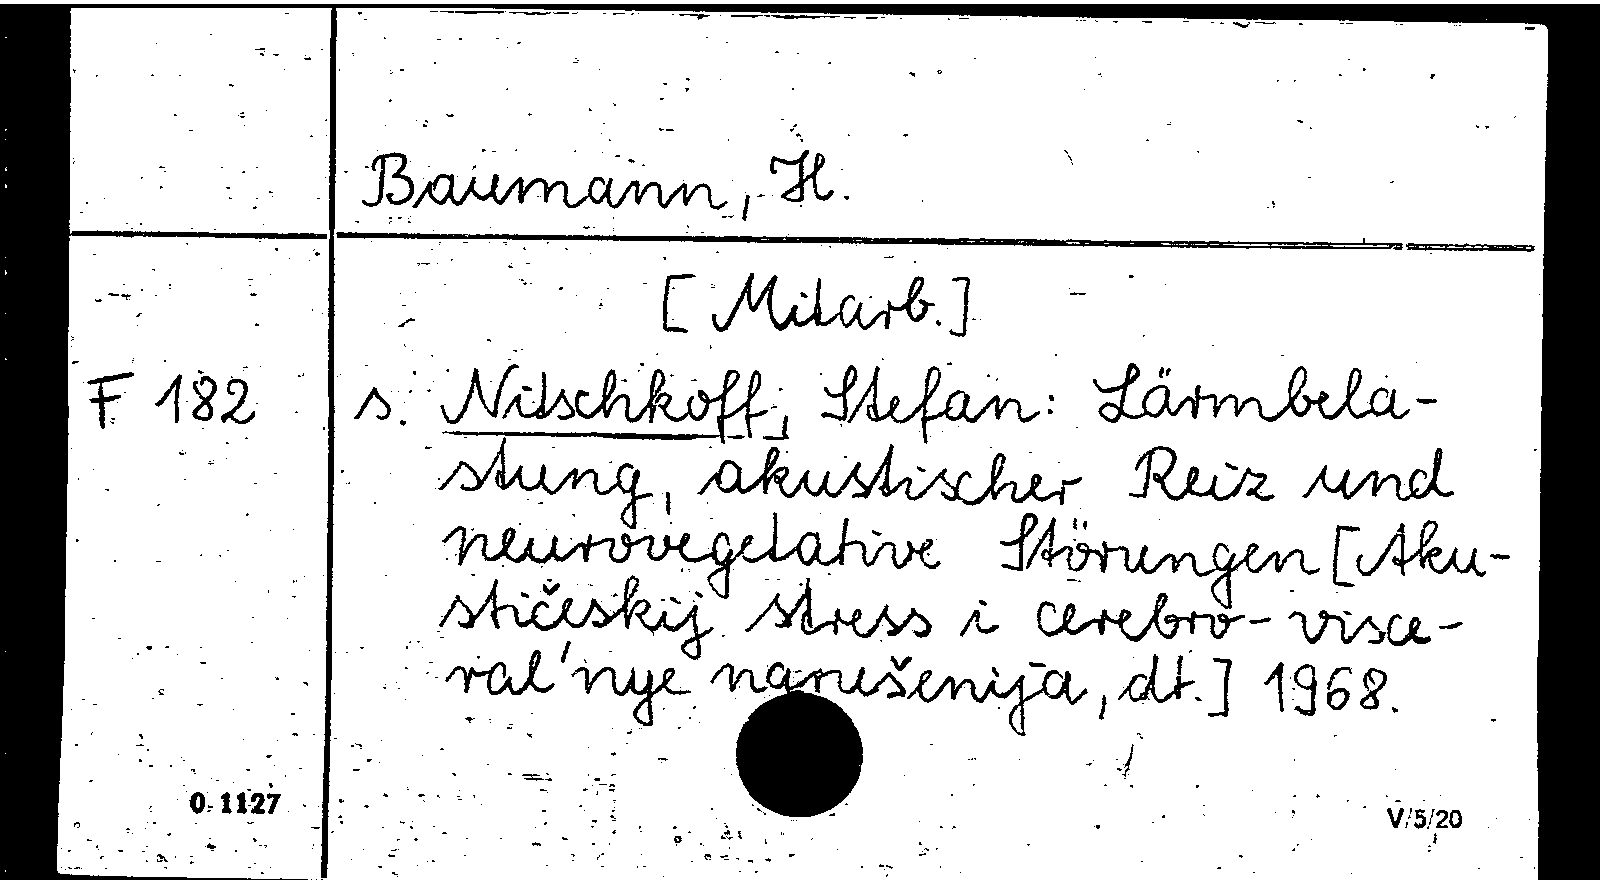 Baumann, H.
[Mitarb.]
F 182 s. Nitschkoff, Stefan: Lärmbela-
stung, akustischer Reiz und
neurovegetative Störungen [Aku-
stičeskij stress i cerebro-visce-
ral'nye narušenija, dt.] 1968.
0 1127
V/5/20